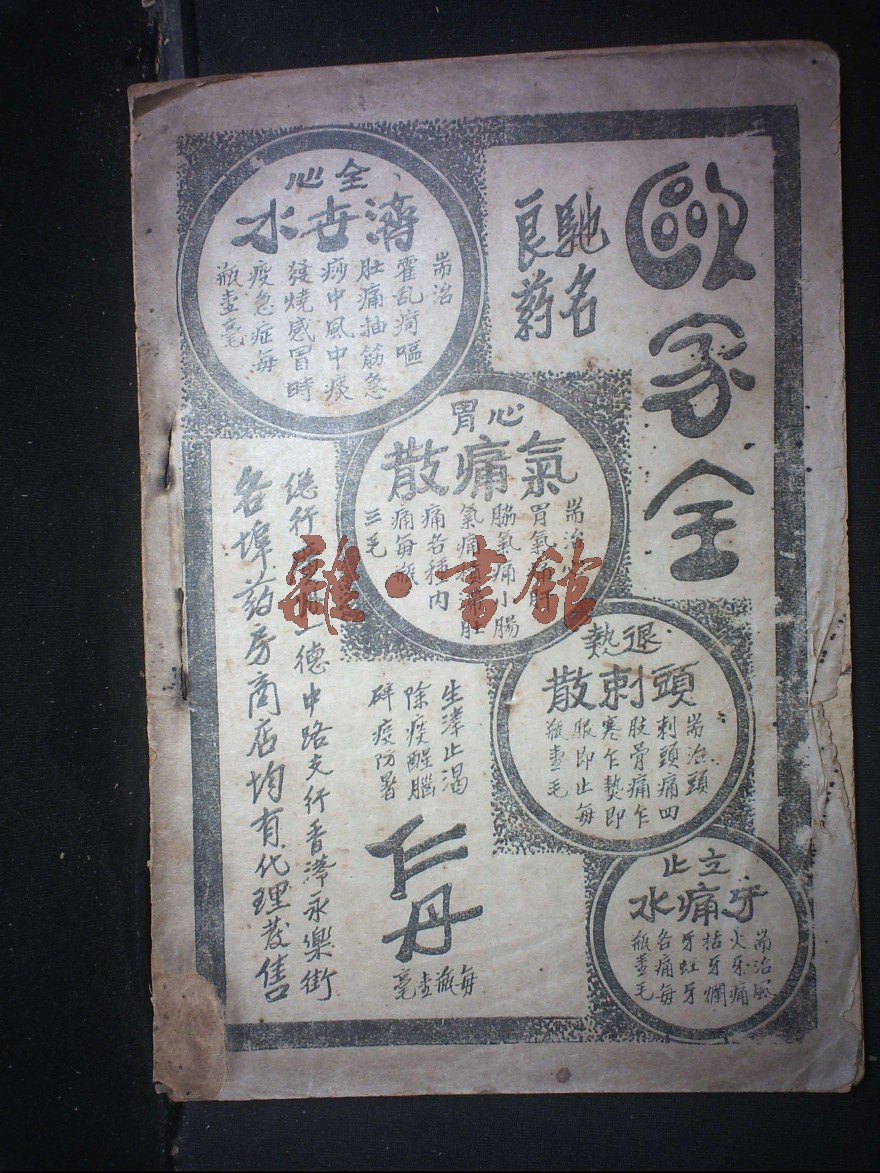 歐家全
馳名
良葯
全心
濟世水
耑治
霍乱痾嘔
肚痛抽筋急
痧中風中痰
發燒感冒時
疫急症每
瓶壹毫
心胃
氣痛散
耑治
胃氣
脇氣痛小腸
氣痛
痛各種内
痛每瓶
三毛
退熱
頭刺散
耑治頭
刺頭痛四
肢骨痛乍
寒乍熱即
服即止每
瓶壹毛
立止
牙痛水
耑治風
火牙痛
枯牙爛
牙蛀牙
各痛每
瓶壹毛
生津止渴
除痰醒腦
辟疫防暑
仁丹
每瓶壹毫
總行
一德中路支行香港永樂街
各埠葯房商店均有代理發售
雜·書館